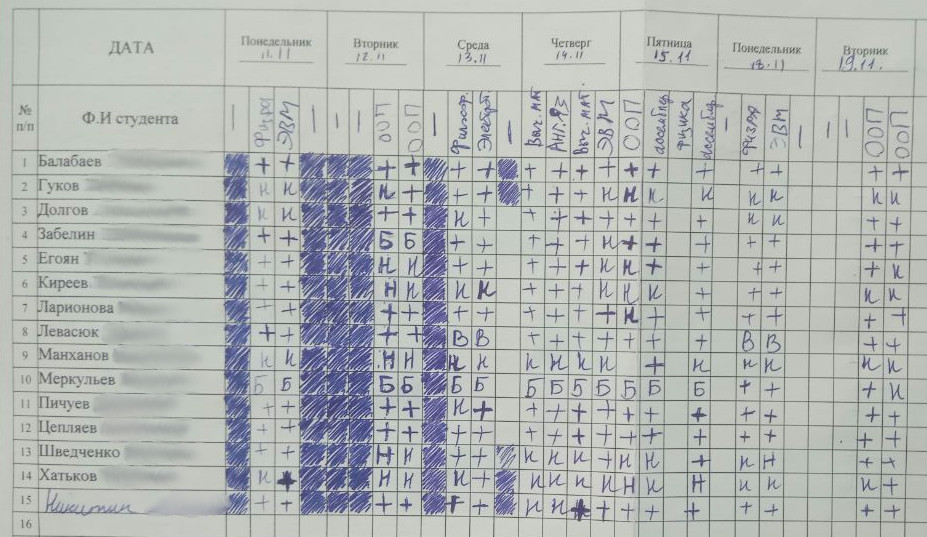 ДАТА Понедельник 11.11 Вторник 12.11 Среда 13.11 Четверг 14.11 Пятница 15.11 Понедельник 18.11 Вторник 19.11.
№ п/п Ф.И студента — Физра ЭВМ — — ООП ООП — Философ. Электрот. — Выч. мат Анг.яз Выч. мат. ЭВМ ООП ассемблер физика ассемблер — физра ЭВМ — — — ООП ООП
1 Балабаев + + + + + + + + + + + + + + + + +
2 Гуков н н н + + + + + + н н н н н н н н
3 Долгов н н + + н + + + + + + + + н н + +
4 Забелин + + Б Б + + + + + н + + + + + + +
5 Егоян + + н н + + + + + н н + + + + + н
6 Киреев + + н н н н + + + н н н + + + н н
7 Ларионова + + + + + + + + + + н + + + + + +
8 Левасюк + + + + В В + + + + + + + В В + +
9 Манханов н н н н н н н н н н н + н н н н н
10 Меркульев Б Б Б Б Б Б Б Б Б Б Б Б Б + + + н
11 Пичуев + + + + н + + + + + + + + + + + +
12 Цепляев + + + + + + + + + + + + + + + + +
13 Шведченко + + н н + + н н н + н н + н н + +
14 Хатьков н + н н н + н н н н н н н н н н +
15 Никитин + + + + + + н н + + + + + + + + +
16